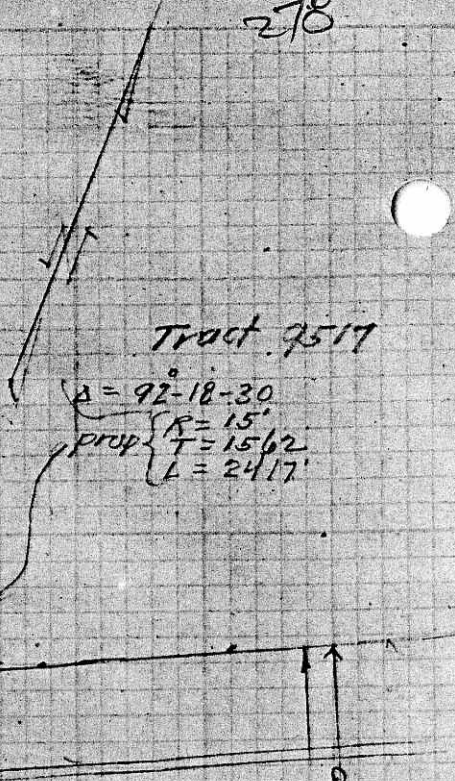 278
Tract 9517
Δ = 92°-18-30
prop { R = 15'
T = 15.62
L = 24.17'